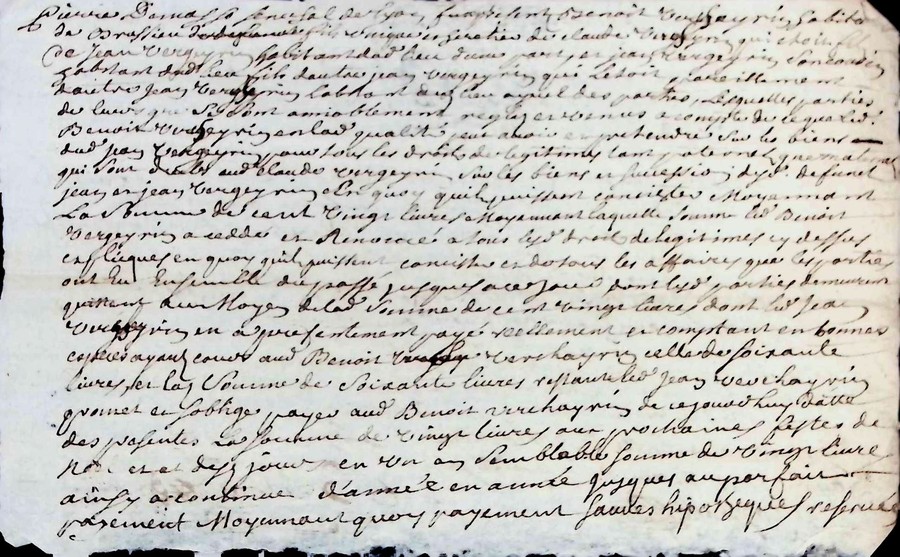 pierre Demasso senechal de Lyon, fut present Benoit Vercheyrin habitant
de Brassieu de fils unique et heretier de claude Vergeyrin qui etoit fils
de Jean Vergeyrin habitant dud. lieu d'une part, et jean Vergeyrin
habitant dud. lieu fils dautre jean Vergeyrin qui letoit pareillement
dautre Jean Vergeyrin habitant du lieu ayeul des parties, Lesquelles parties
de leurs gré se sont amiablement reglez et venus a compte de ce que led.
Benoit Vergeyrin en lad. qualité peut avoir et pretendre sur les biens
dud. jean Vergeyrin pour tous les droits de legitimes tant paternel que maternel
qui sont dubs aud. Claude Vergeyrin sur les biens et sucession desd. defunct
jean et jean Vergeyrin en quoy quils puissent concister Moyennant
La Somme de cent Vingt livres Moyennant laquelle somme led. Benoit
Vergeyrin a ceddé et Renoncé a tous lesd. droits de legitimes cy dessus
expliqués en quoy quil puissent concister et de tous les affaires que les parties
ont Eu Ensemble du passé jusques a ce jour dont lesd. parties demeurent
quittent au Moyen de lad. Somme de cent vingt livres dont led. Jean
Vergeyrin en a presentement payé réellement et comptant en bonnes
especes ayant cours aud. Benoit Verchayrin celle de soixante
livres, et la Somme de Soixante livres restante led. Jean Verchayrin
promet et soblige payer aud. Benoit Verchayrin de ce jourdhuy datte
des presentes La somme de Vingt livres aux prochaines festes de
et desd. jour en un an semblable somme de Vingt livres
ainsy a continuer d'année en année jusques au parfait
payement Moyennant quoy payement sauves hipoteques reservé